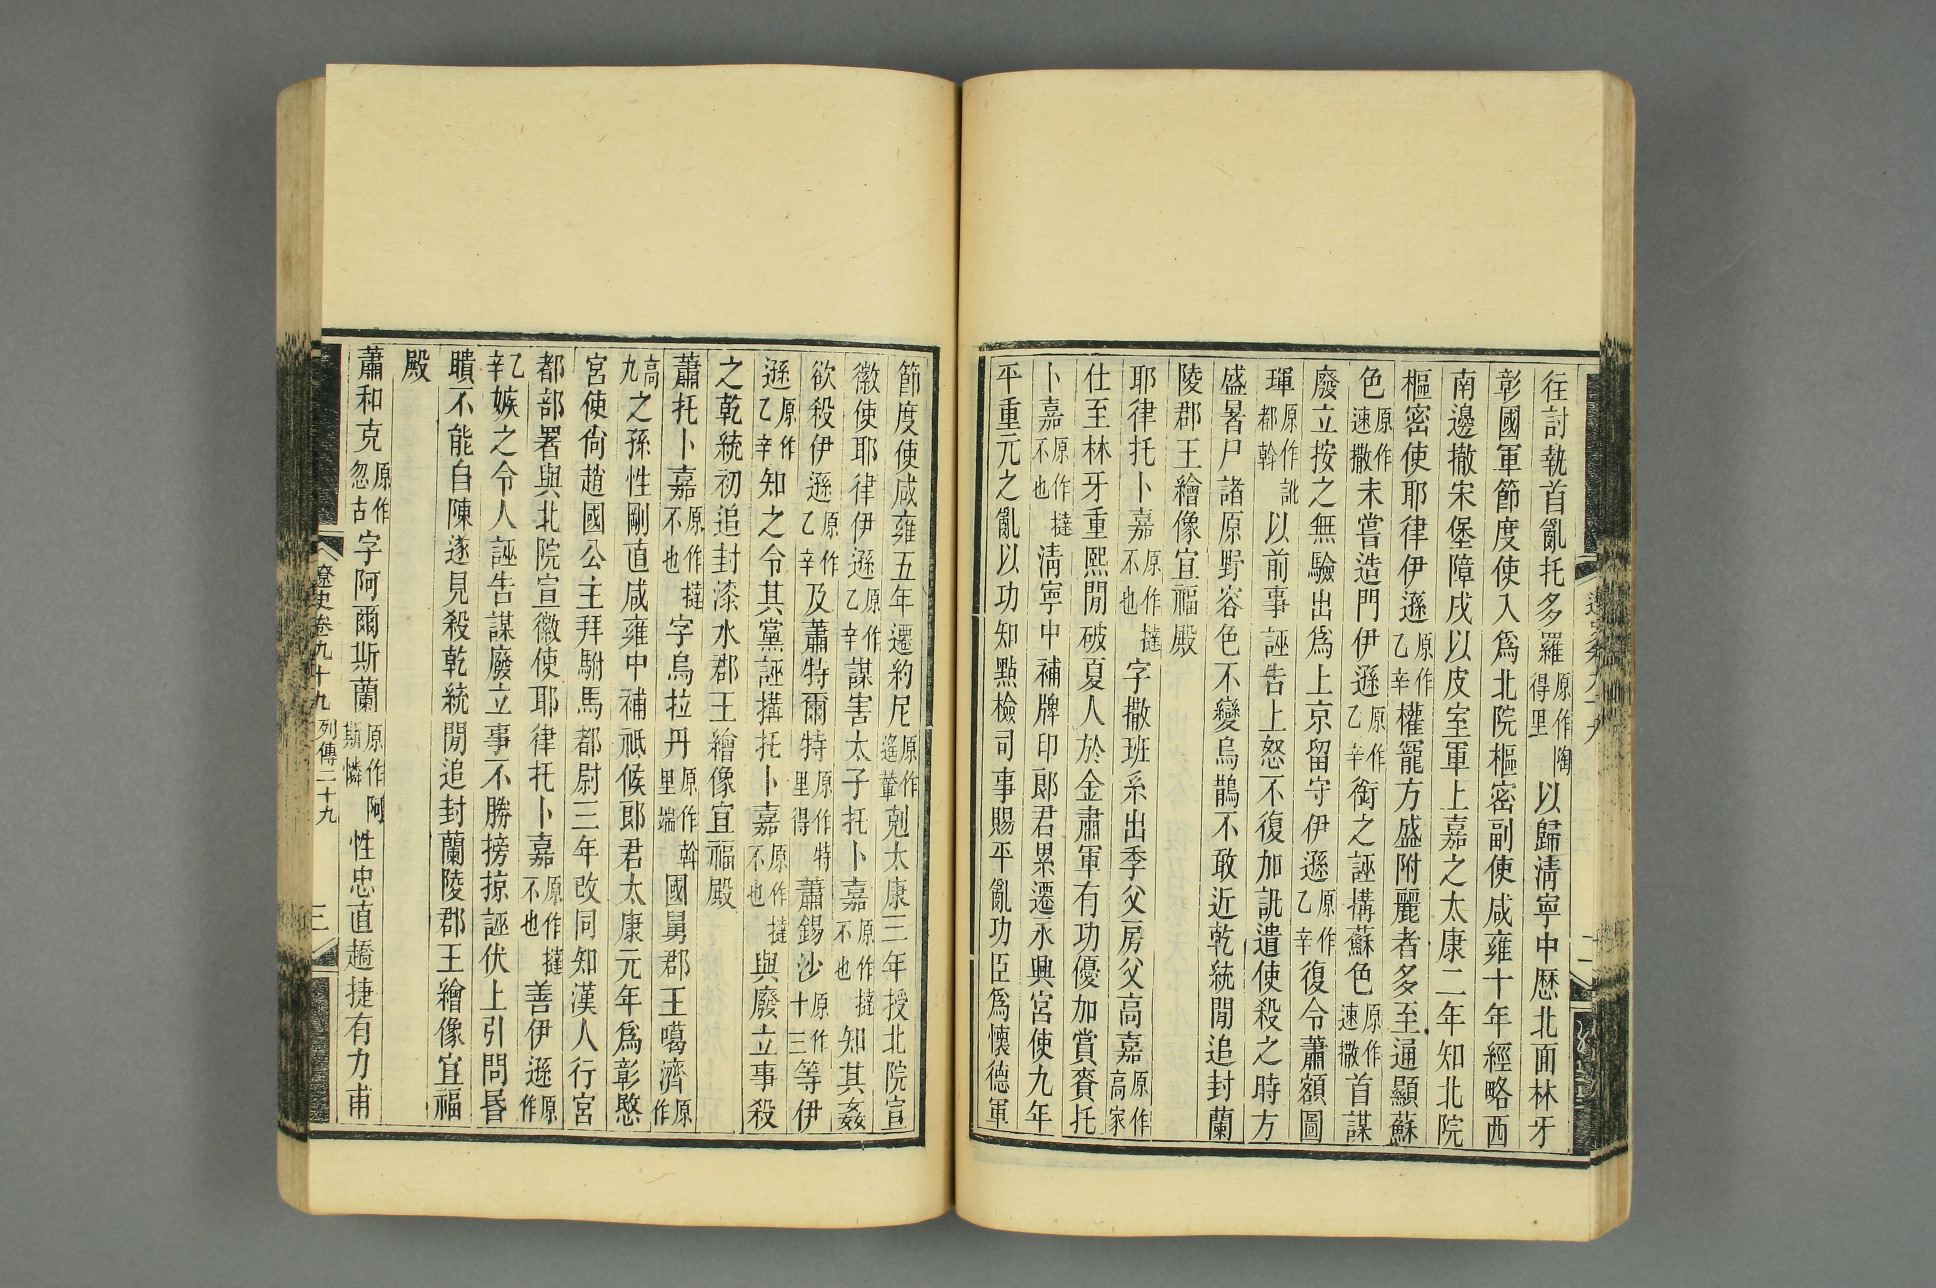 往討執首亂托多羅原作陶得里以歸淸寧中歷北面林牙
彰國軍節度使入爲北院樞密副使咸雍十年經略西
南邊撤宋堡障戍以皮室軍上嘉之太康二年知北院
樞密使耶律伊遜原作乙辛權寵方盛附麗者多至通顯蘇
色原作速撒未嘗造門伊遜原作乙辛銜之誣搆蘇色原作速撒首謀
廢立按之無驗出爲上京留守伊遜原作乙辛復令蕭額圖
琿原作訛都斡以前事誣告上怒不復加訊遣使殺之時方
盛暑尸諸原野容色不變烏鵲不敢近乾統閒追封蘭
陵郡王繪像宜福殿
耶律托卜嘉原作撻不也字撒班系出季父房父高嘉原作高家
仕至林牙重熙閒破夏人於金肅軍有功優加賞賚托
卜嘉原作撻不也淸寧中補牌印郞君累遷永興宮使九年
平重元之亂以功知點檢司事賜平亂功臣爲懷德軍
節度使咸雍五年遷約尼原作遙輦剋太康三年授北院宣
徽使耶律伊遜原作乙辛謀害太子托卜嘉原作撻不也知其姦
欲殺伊遜原作乙辛及蕭特爾特原作特里得蕭錫沙原作十三等伊
遜原作乙辛知之令其黨誣搆托卜嘉原作撻不也與廢立事殺
之乾統初追封漆水郡王繪像宜福殿
蕭托卜嘉原作撻不也字烏拉丹原作斡里端國舅郡王噶濟原作
高九之孫性剛直咸雍中補祗候郞君太康元年爲彰愍
宮使尙趙國公主拜駙馬都尉三年改同知漢人行宮
都部署與北院宣徽使耶律托卜嘉原作撻不也善伊遜原作
乙辛嫉之令人誣告謀廢立事不勝搒掠誣伏上引問昬
瞶不能自陳遂見殺乾統閒追封蘭陵郡王繪像宜福
殿
蕭和克原作忽古字阿爾斯蘭原作阿斯憐性忠直趫捷有力甫
遼史卷九十九 列傳二十九 三